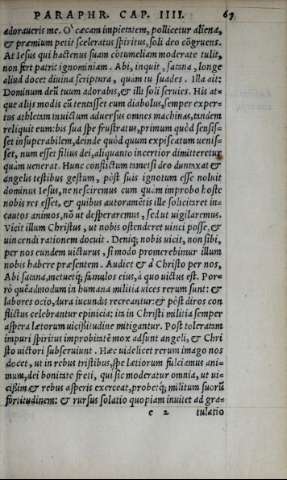 PARAPHR. CAP. IIII. 67
adoraueris me. O cæcam impietatem, pollicetur aliena,
& præmium petit sceleratus spiritus, soli deo cōgruens.
At Iesus qui hactenus suam cōtumeliam moderate tulit,
non fert patris ignominiam. Abi, inquit, satana, longe
aliud docet diuina scriptura, quàm tu suades. Illa ait:
Dominum deū tuum adorabis, & illi soli seruies. His at-
que alijs modis cū tentasset eum diabolus, semper exper-
tus athletam inuictum aduersus omnes machinas, tandem
reliquit eum: bis sua spe frustratus, primum quòd sensis-
set insuperabilem, deinde quòd quum expiscatum uenis-
set, num esset filius dei, aliquanto incertior dimitteretur
quàm uenerat. Hunc conflictum immisso deo duntaxat &
angelis testibus gestum, pòst suis ignotum esse noluit
dominus Iesus, ne nesciremus cum quàm improbo hoste
nobis res esset, & quibus autoramētis ille soliciteret in-
cautos animos, nō ut desperaremus, sed ut uigilaremus.
Vicit illum Christus, ut nobis ostenderet uinci posse, &
uincendi rationem docuit. Deniq; nobis uicit, non sibi,
per nos eundem uicturus, si modo promerebimur illum
nobis habere præsentem. Audiet & à Christo per nos,
Abi satana, metuetq; famulos eius, à quo uictus est. Por-
rò quēadmodum in humana militia uices rerum sunt: &
labores ocio, dura iucundis recreantur: & pòst diros con
flictus celebrantur epinicia: ita in Christi militia semper
aspera lætorum uicissitudine mitigantur. Post toleratam
impuri spiritus improbitatē mox adsunt angeli, & Chri
sto uictori subseruiunt. Hæc uidelicet rerum imago nos
docet, ut in rebus tristibus, spe lætiorum fulciamus ani-
mum, dei bonitate freti, qui sic moderatur omnia, ut ui-
cißim & rebus asperis exerceat, probetq; militum suorū
fortitudinem: & rursus solatio quopiam inuitet ad gra-
e 2 tulatio